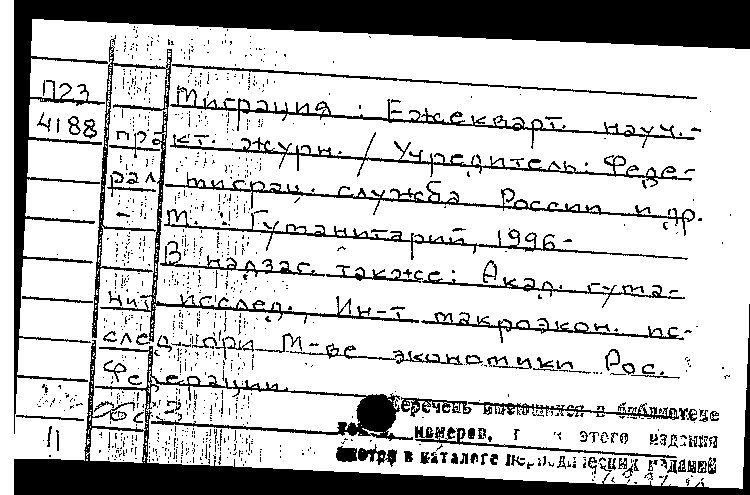 П23 Миграция : Ежекварт. науч.-
4188 практ. журн. / Учредитель: Феде-
рал. миграц. служба России и др.
- М. : Гуманитарий, 1996-
В надзаг. также: Акад. гума-
нит. исслед., Ин-т макроэкон. ис-
след. при М-ве экономики Рос.
Федерации.
Перечень имеющихся в библиотеке
номеров, этого издания
смотри в каталоге периодических изданий
11